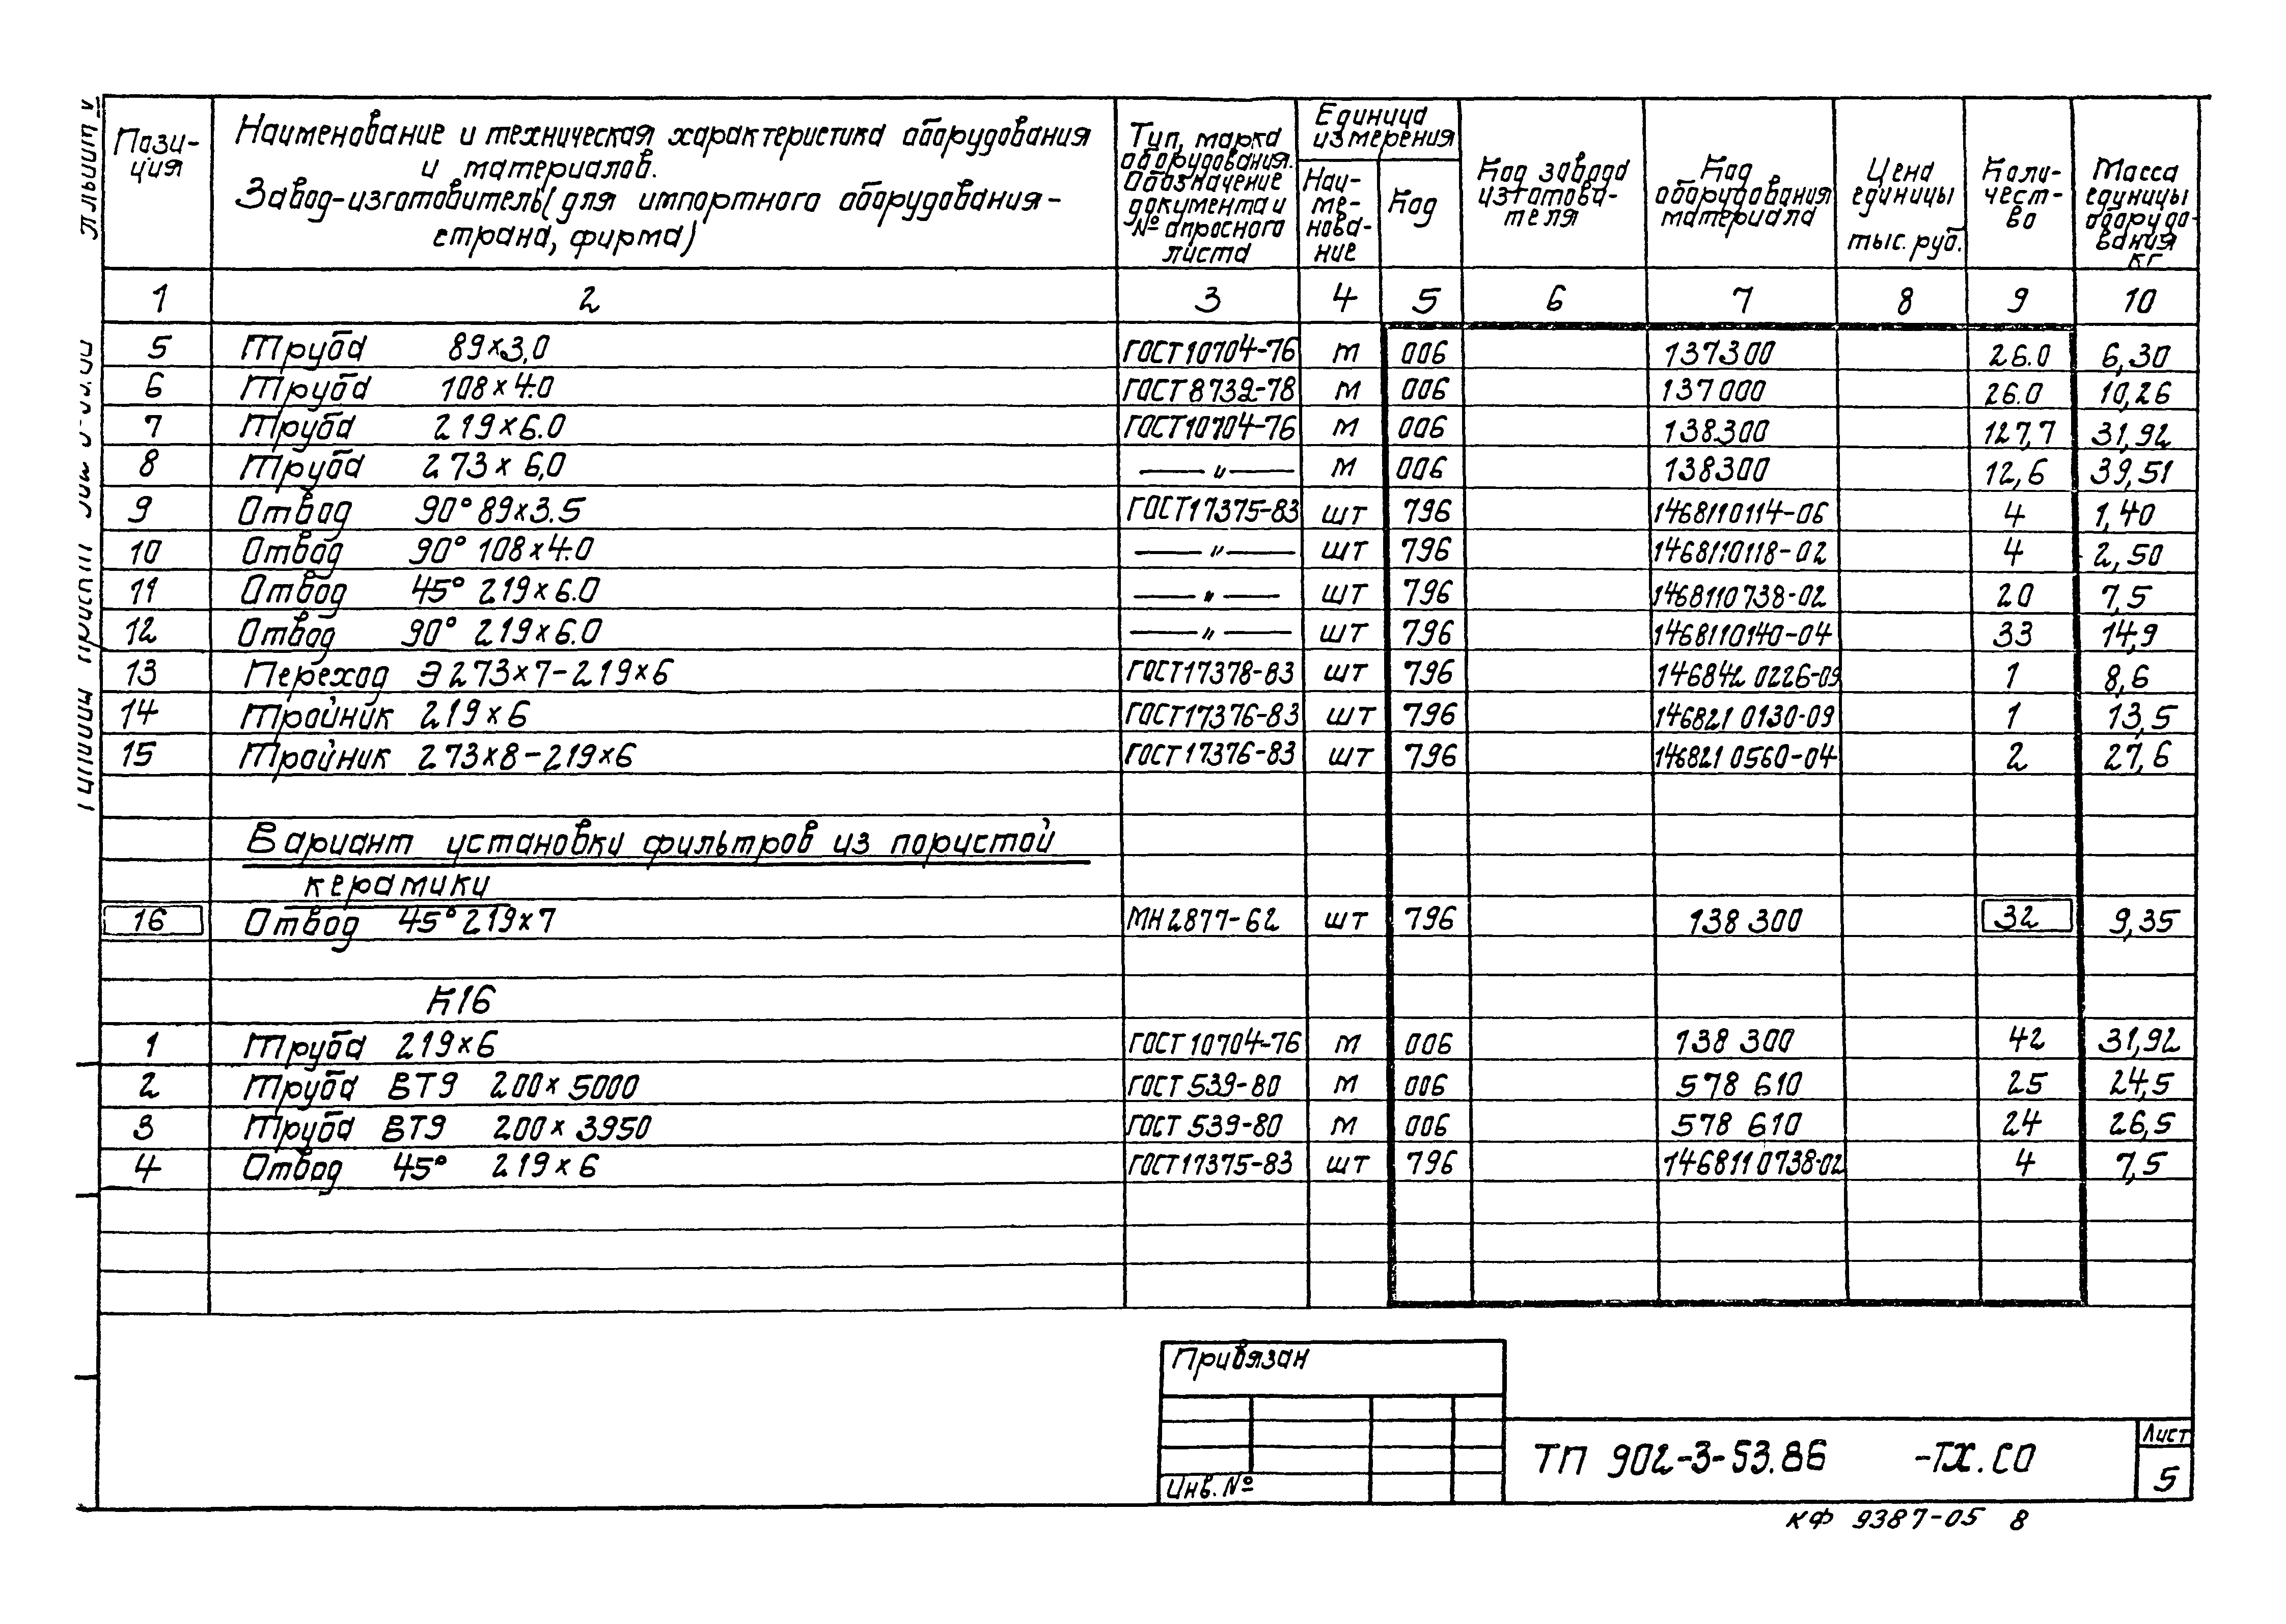 Пози-
ция
Наименование и техническая характеристика оборудования
и материалов.
Завод-изготовитель (для импортного оборудования-
страна, фирма)
Тип, марка
оборудования.
Обозначение
документа и
№ опросного
листа
Единица
измерения
Наи-
ме-
нова-
ние
Код
Код завода
изготови-
теля
Код
оборудования
материала
Цена
единицы
тыс. руб.
Коли-
чест-
во
Масса
единицы
оборудо-
вания
кг
1 2 3 4 5 6 7 8 9 10
5 Труба 89×3,0 ГОСТ 10704-76 м 006 137300 26.0 6,30
6 Труба 108×4.0 ГОСТ 8732-78 м 006 137000 26.0 10,26
7 Труба 219×6.0 ГОСТ 10704-76 м 006 138300 127,7 31,92
8 Труба 273×6,0 —— " —— м 006 138300 12,6 39,51
9 Отвод 90° 89×3.5 ГОСТ 17375-83 шт 796 1468110114-06 4 1,40
10 Отвод 90° 108×4.0 —— " —— шт 796 1468110118-02 4 2,50
11 Отвод 45° 219×6.0 —— " —— шт 796 1468110738-02 20 7,5
12 Отвод 90° 219×6.0 —— " —— шт 796 1468110140-04 33 14,9
13 Переход Э 273×7-219×6 ГОСТ 17378-83 шт 796 146842 0226-09 1 8,6
14 Тройник 219×6 ГОСТ 17376-83 шт 796 146821 0130-09 1 13,5
15 Тройник 273×8-219×6 ГОСТ 17376-83 шт 796 146821 0560-04 2 27,6
Вариант установки фильтров из пористой
керамики
16 Отвод 45° 219×7 МН 2877-62 шт 796 138 300 32 9,35
К16
1 Труба 219×6 ГОСТ 10704-76 м 006 138 300 42 31,92
2 Труба ВТ9 200×5000 ГОСТ 539-80 м 006 578 610 25 24,5
3 Труба ВТ9 200×3950 ГОСТ 539-80 м 006 578 610 24 26,5
4 Отвод 45° 219×6 ГОСТ 17375-83 шт 796 1468110738-02 4 7,5
Привязан
Инв. №
ТП 902-3-53.86 -ТХ.СО
Лист
5
КФ 9387-05 8